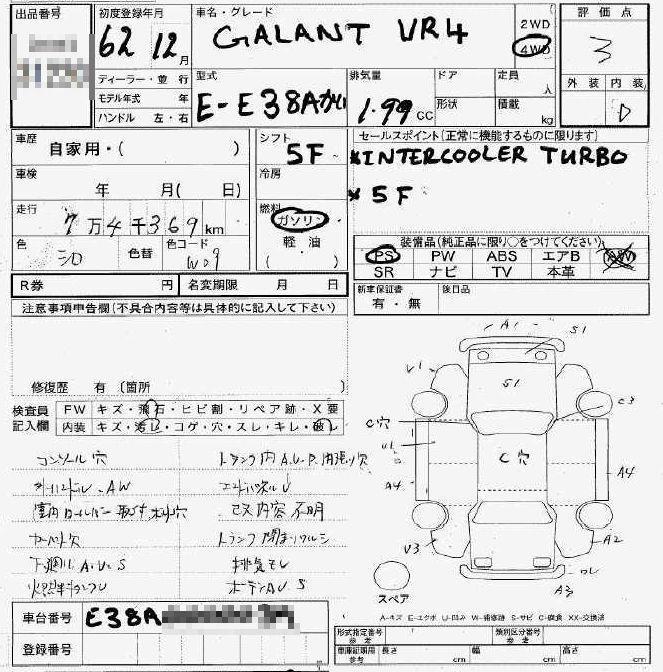 出品番号
初度登録年月
62 12 月
車名・グレード
GALANT VR4
2WD
4WD
評価点
3
外装 内装
D
ディーラー・並行
モデル年式 年
ハンドル 左・右
型式
E-E38Aカイ
排気量
1.99 CC
ドア
形状
定員
人
積載
kg
車歴
自家用・( )
シフト
5F
セールスポイント(正常に機能するものに限ります)
*INTERCOOLER TURBO
* 5F
車検
年 月( 日)
冷房
走行
7万4千369km
燃料
ガソリン
軽油
( )
色
シロ
色替
色コード
W09
装備品(純正品に限り○をつけてください)
PS PW ABS エアB AW
SR ナビ TV 本革
R券 円
名変期限 月 日
新車保証書
有・無
後日品
注意事項申告欄(不具合内容等は具体的に記入して下さい)
修復歴 有 (箇所
検査員
記入欄
FW キズ・飛石・ヒビ割・リペア跡・X要
内装 キズ・汚レ・コゲ・穴・スレ・キレ・破レ
コンソール穴
トランク内A.U.P.
穴
AW
エンドパネルU
室内ロールバー取付
穴
公認内容不明
カーペット穴
トランク閉まりワルシ
下廻リA.U.S
排気モレ
ボデーA U S
A1
S1
V1
S1
C3
C穴
C穴
A4
A4
V3
A2
A3
スペア
A-キズ E-エクボ U-凹み W-補修跡 S-サビ C-腐食 XX-交換済
車台番号 E38A
登録番号
形式指定番号
参考
類別区分番号
参考
車庫証明用
参考
長さ cm
幅 cm
高さ cm